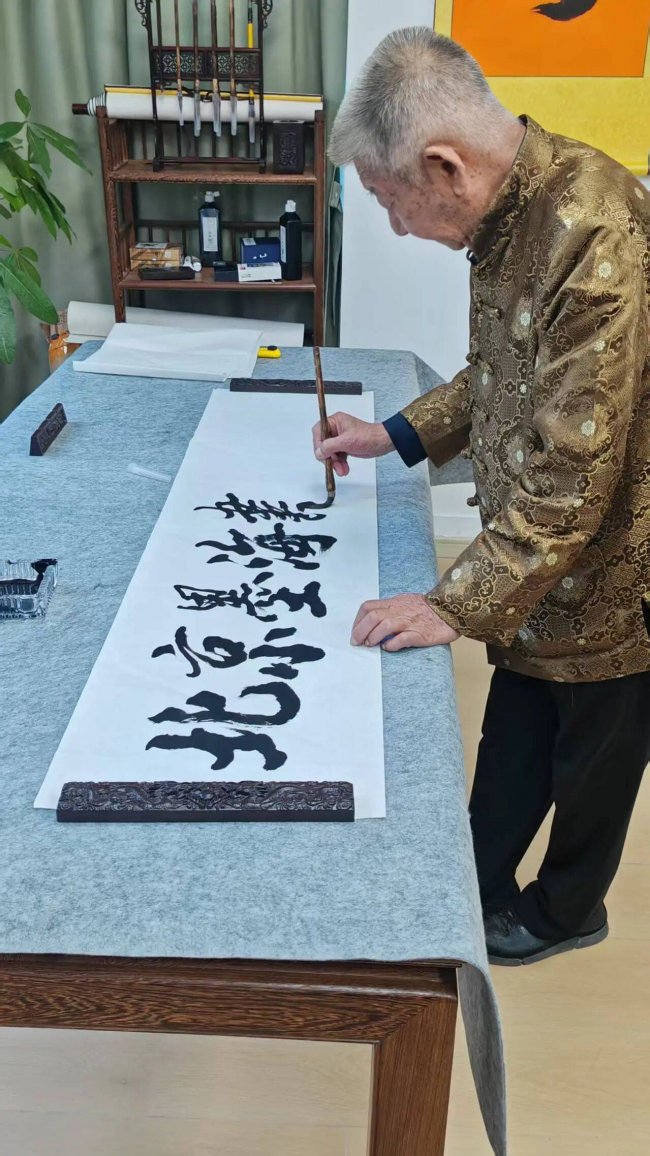 北京墨海